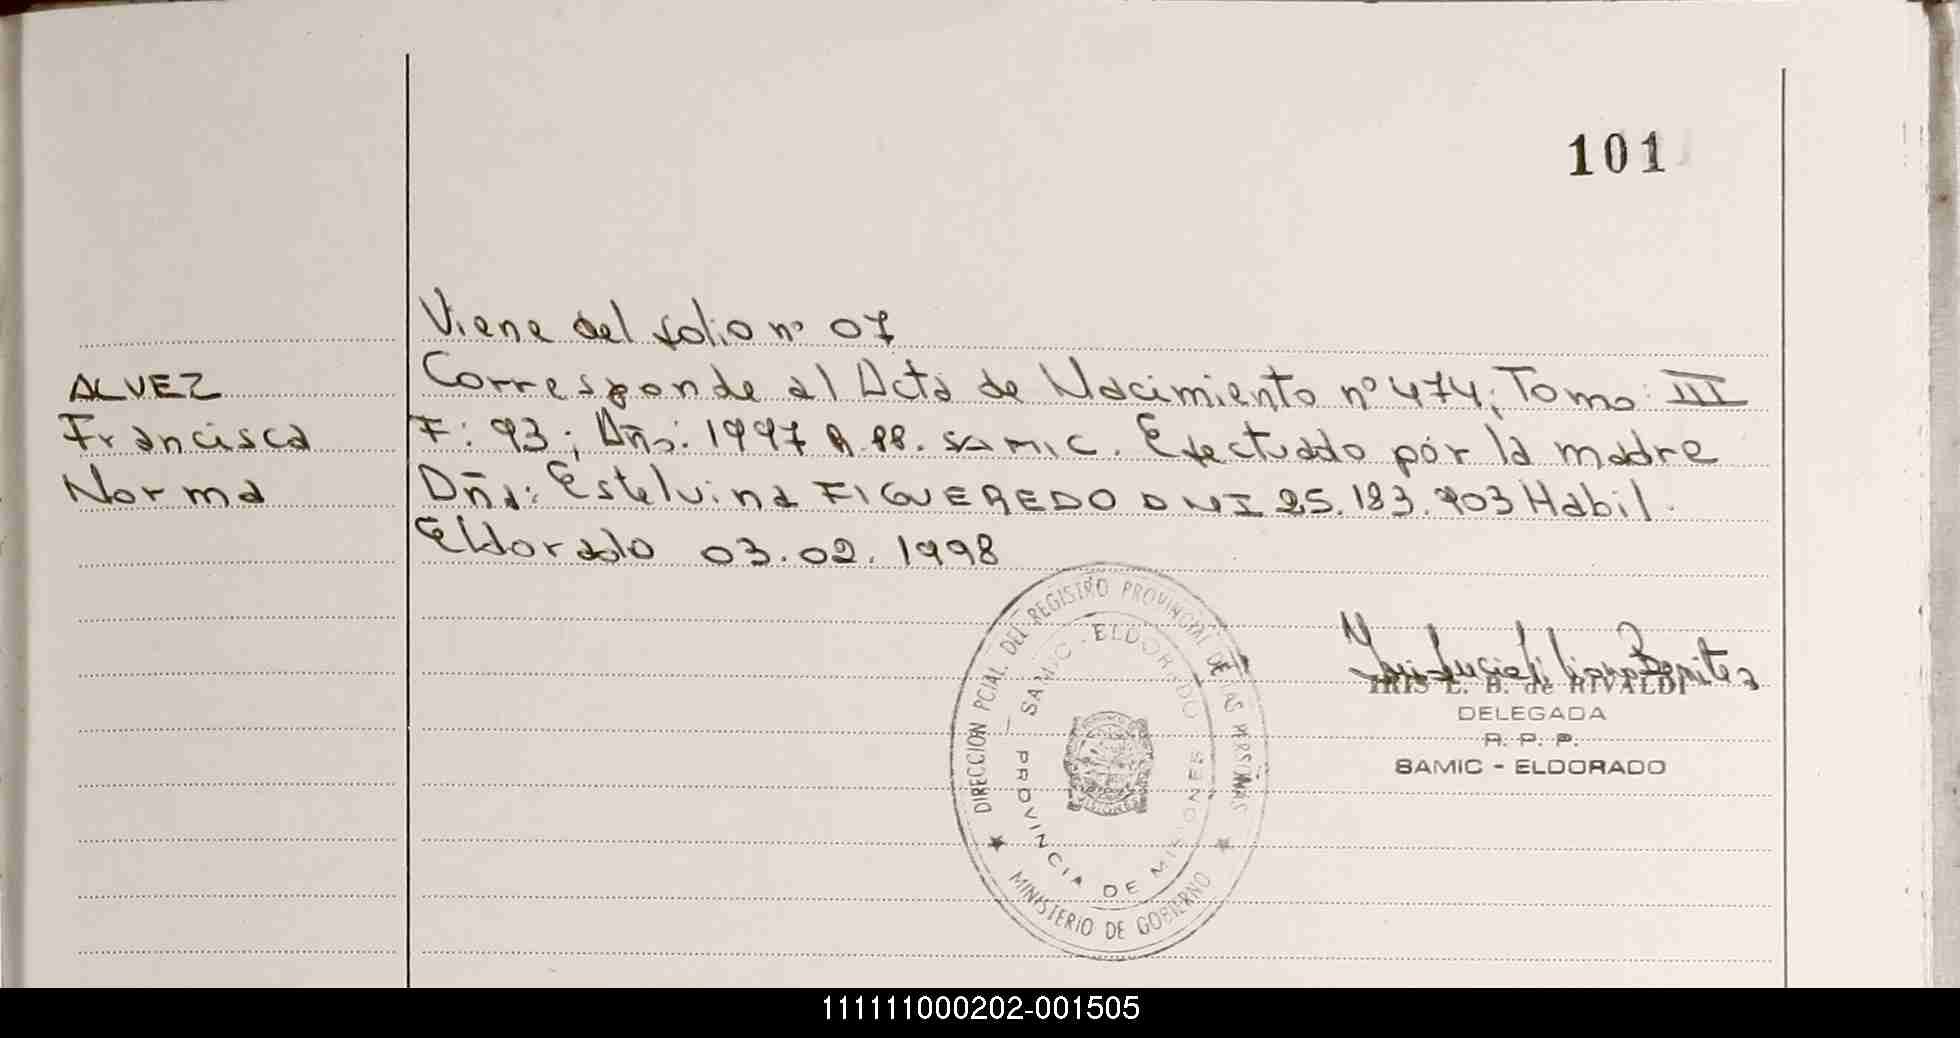 101
Viene del folio nº 07
ALVEZ
Francisca
Norma
Corresponde al Acta de Nacimiento nº 474; Tomo: III
F: 93; Año: 1997 R.PP. SAMIC. Efectuado por la madre
Dña: Estelvina FIGUEREDO DNI 25.183.903 Habil.
Eldorado 03.02.1998
DIRECCION PCIAL. DEL REGISTRO PROVINCIAL DE LAS PERSONAS
SAMIC - ELDORADO
PROVINCIA DE MISIONES
MINISTERIO DE GOBIERNO
IRIS L. B. de RIVALDI
DELEGADA
R. P. P.
SAMIC - ELDORADO
111111000202-001505